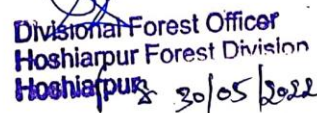 Divisional Forest Officer
Hoshiarpur Forest Division
Hoshiarpur 30/05/2022